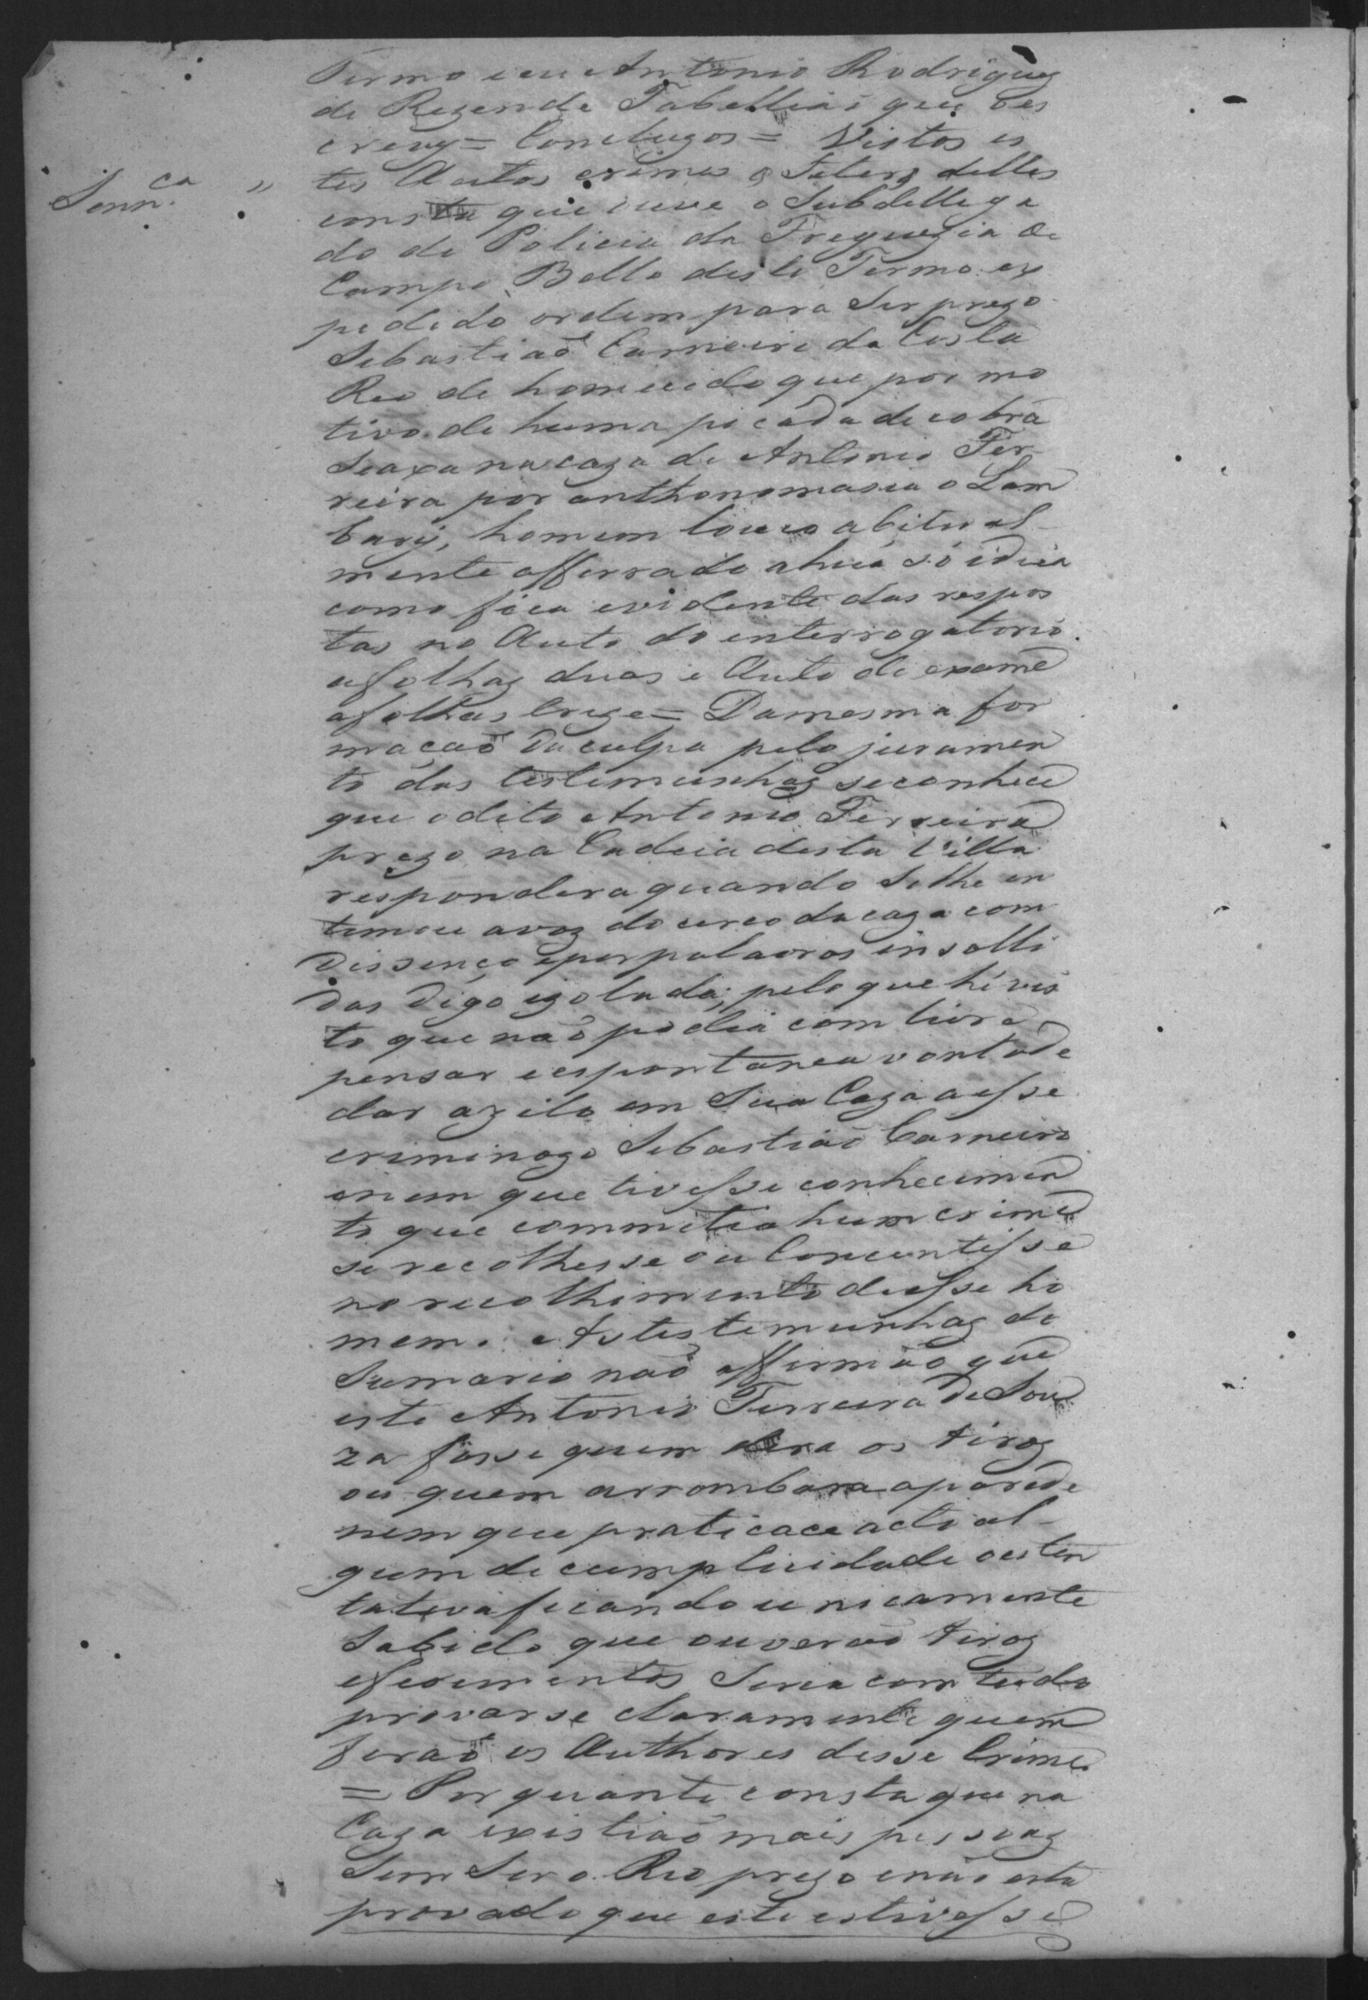 Termo eeu Antonio Rodrigues
de Rezende Tabelliaõ que oes
crevy = Concluzos = Vistos es
Senn.ca "
tes Autos crimes & delles
consta que ouve o Subdellega
do de Policia da Freguezia de
Campo Bello deste Termo ex
pedido ordem para Ser prezo
Sebastiaõ Carneiro da Costa
Reo de homicido que por mo
tivo de huma picada de cobra
Seaxa na caza de Antonio Fer
reira por anthonomasia o Lam
bary, homem louco abitual-
mente afferrado ahuã só idiia
como fica evidente das respos
tas no Auto do enterrogatorio
afolhas duas e Auto de exame
afolhas treze = Damesma for
macaõ da culpa pelo juramen
to das testemunhas seconhece
que odito Antonio Ferreira
prezo na Cadeia desta Villa
respondera quando Selhe in
timou avoz do cerco da caza com
Dissenço epor palavras insolli
das digo izoladas; pelo que hé vis
to que naõ podia com livre
pensar eespontanea vontade
dar azilo em Sua Caza aesse
criminozo Sebastiaõ Carneiro
enem que tivesse conhecimen
to que commetia hum crime
se recolhesse ou Concentisse
no recolhimento desse ho
mem. As testemunhas do
Sumario naõ affirmaõ que
este Antonio Ferreira de Sou
za fosse quem dera os tiros
ou quem arrombara aparede
nem que praticace acto al-
gum de cumplicidade ou ten
tativa ficando unicamente
Sabido que ouveraõ tiros
eferimentos Sem com tudo
provarse claramente quem
foraõ os Authores desse Crime
= Por quanto consta que na
Caza existiaõ mais pessoas
Sem Ser o Reo prezo enaõ está
provado que este estivesse